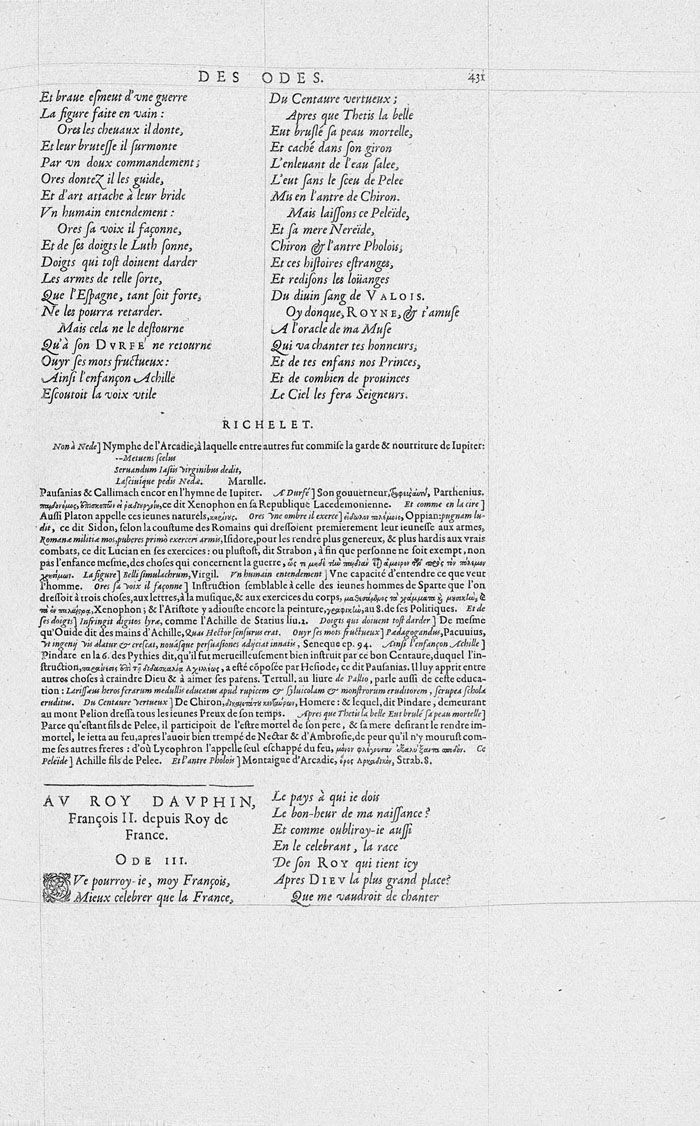 DES ODES. 431
Et braue eſmeut d'vne guerre
La figure faite en vain :
Ores les cheuaux il donte,
Et leur bruteſſe il ſurmonte
Par vn doux commandement ;
Ores dontez il les guide,
Et d'art attache à leur bride
Vn humain entendement :
Ores ſa voix il façonne,
Et de ſes doigts le Luth ſonne,
Doigts qui toſt doiuent darder
Les armes de telle ſorte,
Que l'Eſpagne, tant ſoit forte,
Ne les pourra retarder.
Mais cela ne le deſtourne
Qu'à ſon DVRFE' ne retourne
Ouyr ſes mots fructueux :
Ainſi l'enfançon Achille
Eſcoutoit la voix vtile
Du Centaure vertueux ;
Apres que Thetis la belle
Eut bruſlé ſa peau mortelle,
Et caché dans ſon giron
L'enleuant de l'eau ſalee,
L'eut ſans le ſceu de Pelee
Mu en l'antre de Chiron.
Mais laiſſons ce Peleïde,
Et ſa mere Nereïde,
Chiron & l'antre Pholois,
Et ces hiſtoires eſtranges,
Et rediſons les loüanges
Du diuin ſang de VALOIS.
Oy donque, ROYNE, & t'amuſe
A l'oracle de ma Muſe
Qui va chanter tes honneurs,
Et de tes enfans nos Princes,
Et de combien de prouinces
Le Ciel les fera Seigneurs.
RICHELET.
Non à Nede] Nymphe de l'Arcadie, à laquelle entre autres fut commiſe la garde & nourriture de Iupiter:
--Metuens ſcelus
Seruandum Iaſiis virginibus dedit,
Laſciuique pedis Nedæ. Marulle.
Pauſanias & Callimach encor en l'hymne de Iupiter. A Durfé] Son gouuerneur, Parthenius.
ce dit Xenophon en ſa Republique Lacedemonienne. Et comme en la cire]
Auſſi Platon appelle ces ieunes naturels, Ores vne ombre il exerce] Oppian: pugnam lu-
dit, ce dit Sidon, ſelon la couſtume des Romains qui dreſſoient premierement leur ieuneſſe aux armes,
Romanæ militiæ mos, puberes primò exerceri armis, Iſidore, pour les rendre plus genereux, & plus hardis aux vrais
combats, ce dit Lucian en ſes exercices : ou pluſtoſt, dit Strabon, à fin que perſonne ne ſoit exempt, non
pas l'enfance meſme, des choſes qui concernent la guerre,
La figure] Belli ſimulachrum, Virgil. Vn humain entendement] Vne capacité d'entendre ce que veut
l'homme. Ores ſa voix il façonne] Inſtruction ſemblable à celle des ieunes hommes de Sparte que l'on
dreſſoit à trois choſes, aux lettres, à la muſique, & aux exercices du corps,
Xenophon ; & l'Ariſtote y adiouſte encore la peinture, au 8. de ſes Politiques. Et de
ſes doigts] Infringit digitos lyræ, comme l'Achille de Statius liu. 2. Doigts qui doiuent toſt darder] De meſme
qu'Ouide dit des mains d'Achille, Quas Hector ſenſurus erat. Ouyr ſes mots fructueux] Pædagogandus, Pacuuius,
vt ingenij vis alatur & creſcat, nouáſque perſuaſiones adjiciat innatis, Seneque ep. 94. Ainſi l'enfançon Achille]
Pindare en la 6. des Pythies dit, qu'il fut merueilleuſement bien inſtruit par ce bon Centaure, duquel l'in-
ſtruction, a eſté cõpoſée par Heſiode, ce dit Pauſanias. Il luy apprit entre
autres choſes à craindre Dieu & à aimer ſes parens. Tertull. au liure de Pallio, parle auſſi de ceſte educa-
tion : Lariſſæus heros ferarum medullis educatus apud rupicem & ſyluicolam & monſtrorum eruditorem, ſcrupea ſchola
eruditus. Du Centaure vertueux] De Chiron, Homere : & lequel, dit Pindare, demeurant
au mont Pelion dreſſa tous les ieunes Preux de ſon temps. Apres que Thetis la belle Eut bruſlé ſa peau mortelle]
Parce qu'eſtant fils de Pelee, il participoit de l'eſtre mortel de ſon pere, & ſa mere deſirant le rendre im-
mortel, le ietta au feu, apres l'auoir bien trempé de Nectar & d'Ambroſie, de peur qu'il n'y mouruſt com-
me ſes autres freres : d'où Lycophron l'appelle ſeul eſchappé du feu, Ce
Peleïde] Achille fils de Pelee. Et l'antre Pholois] Montaigne d'Arcadie, Strab. 8.
AV ROY DAVPHIN,
François II. depuis Roy de
France.
ODE III.
Ve pourroy-ie, moy François,
Mieux celebrer que la France,
Le pays à qui ie dois
Le bon-heur de ma naiſſance ?
Et comme oubliroy-ie auſſi
En le celebrant, la race
De ſon ROY qui tient icy
Apres DIEV la plus grand place ?
Que me vaudroit de chanter